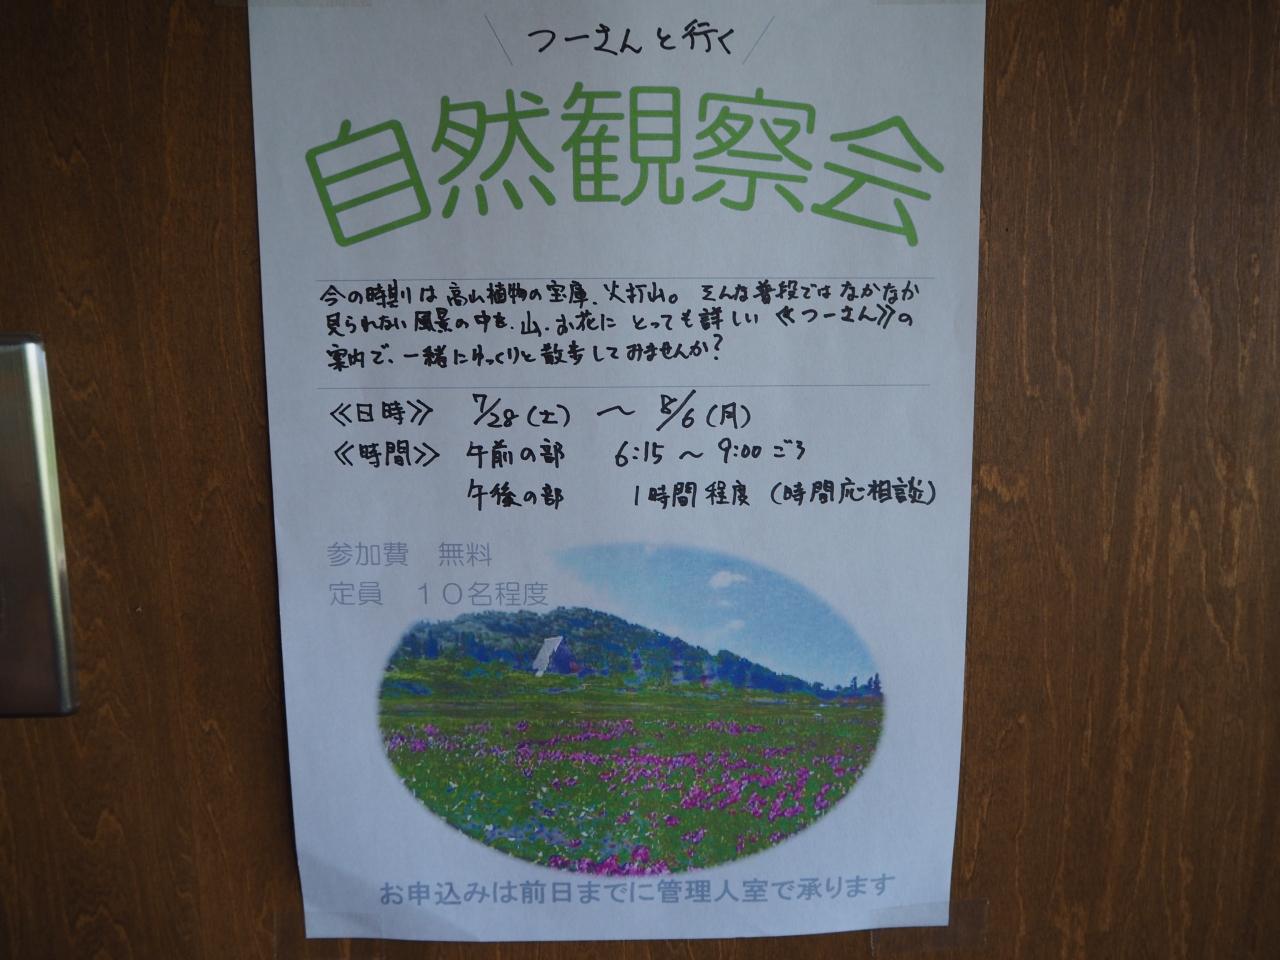 つーさんと行く
自然観察会
今の時期は高山植物の宝庫、火打山。そんな普段ではなかなか
見られない風景の中を、山・お花にとっても詳しい≪つーさん≫の
案内で、一緒にゆっくりと散歩してみませんか?
≪日時≫ 7/28(土) ～ 8/6(月)
≪時間≫ 午前の部 6:15 ～ 9:00ごろ
午後の部 1時間程度 (時間応相談)
参加費 無料
定員 10名程度
お申込みは前日までに管理人室で承ります